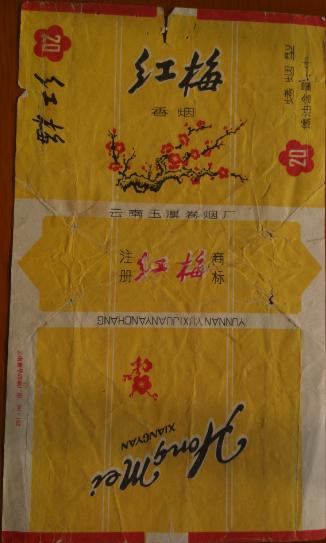 20
红梅
红梅
香烟
烤烟型
焦油含量 中
20
云南玉溪卷烟厂
注册
红梅
商标
YUNNAN YUXI JUANYANCHANG
Hong Mei
XIANGYAN